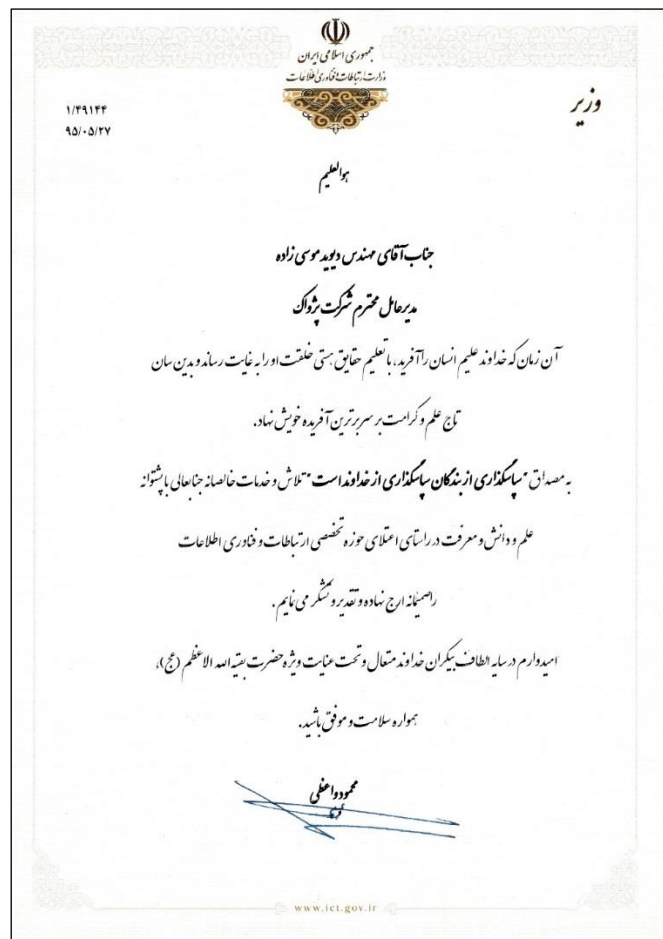 جمهوری اسلامی ایران
وزارت ارتباطات و فناوری اطلاعات
وزیر
۱/۴۹۱۴۴
۹۵/۰۵/۲۷
هوالعلیم
جناب آقای مهندس دیوید موسی زاده
مدیرعامل محترم شرکت پژواک
آن زمان که خداوند علیم انسان را آفرید، با تعلیم حقایق هستی خلقت او را به غایت رساند و بدین سان
تاج علم و کرامت بر سر برترین آفریده خویش نهاد.
به مصداق "سپاسگذاری از بندگان سپاسگذاری از خداوند است" تلاش و خدمات خالصانه جنابعالی با پشتوانه
علم و دانش و معرفت در راستای اعتلای حوزه تخصصی ارتباطات و فناوری اطلاعات
را صمیمانه ارج نهاده و تقدیر و تشکر می نمایم.
امیدوارم در سایه الطاف بیکران خداوند متعال و تحت عنایت ویژه حضرت بقیه الله الاعظم (عج)،
همواره سلامت و موفق باشید.
محمود واعظی
www.ict.gov.ir